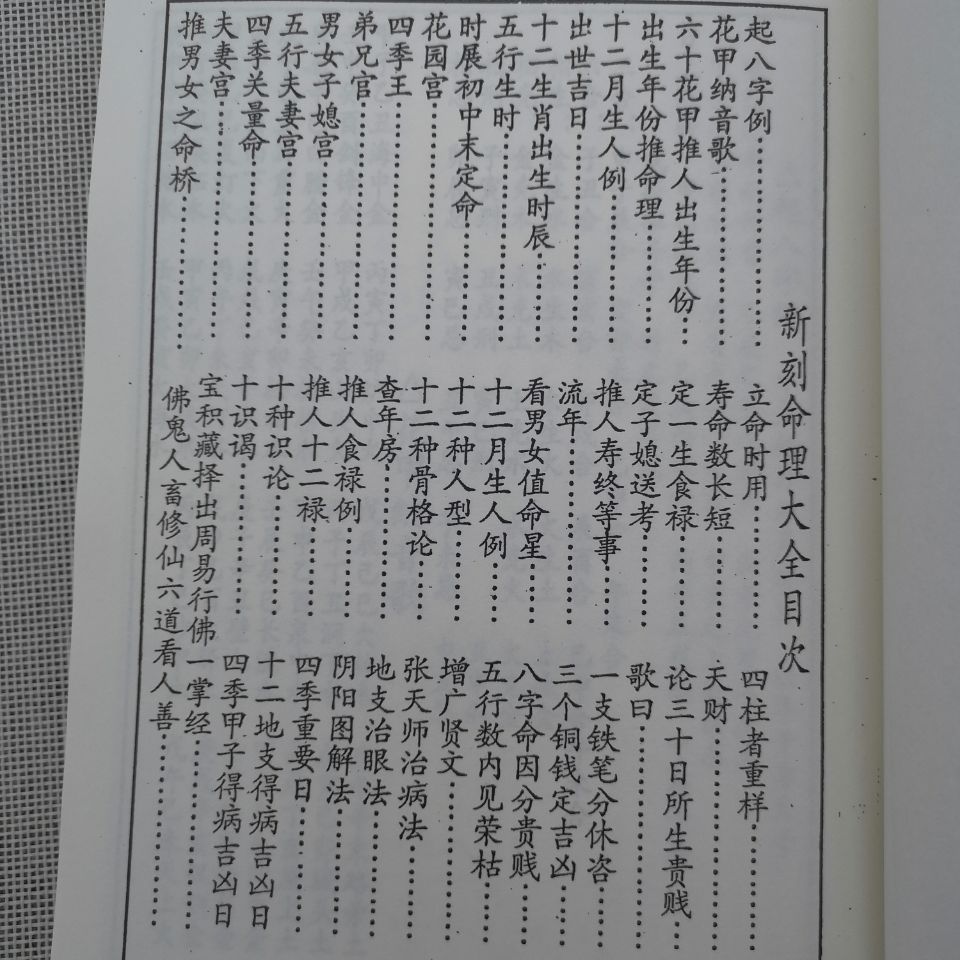 新刻命理大全目次
起八字例
花甲纳音歌
六十花甲推人出生年份
出生年份推命理
十二月生人例
出世吉日
十二生肖出生时辰
五行生时
时展初中末定命
花园宫
四季王
弟兄宫
男女子媳宫
五行夫妻宫
四季关量命
夫妻宫
推男女之命桥
立命时用
寿命数长短
定一生食禄
定子媳送考
推人寿终等事
流年
看男女值命星
十二月生人例
十二种人型
十二种骨格论
查年房
推人食禄例
推人十二禄
十种识论
十识谒
宝积藏择出周易行佛一掌经
佛鬼人畜修仙六道看人善
四柱者重样
天财
论三十日所生贵贱
歌曰
一支铁笔分休咨
三个铜钱定吉凶
八字命因分贵贱
五行数内见荣枯
增广贤文
张天师治病法
地支治眼法
阴阳图解法
四季重要日
十二地支得病吉凶日
四季甲子得病吉凶日